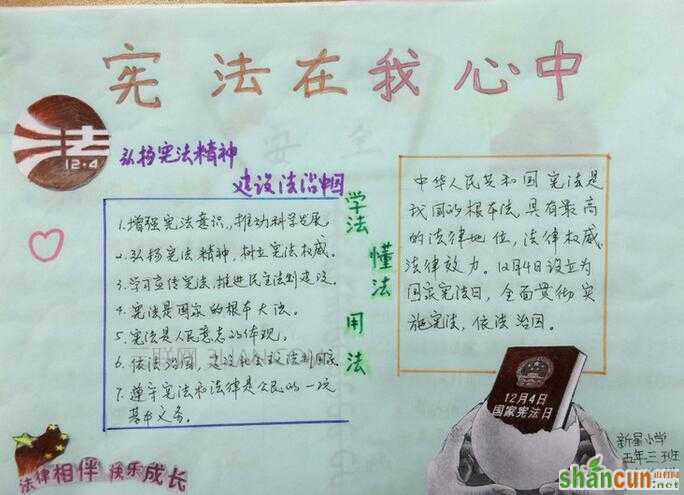 宪法在我心中
法
12·4
弘扬宪法精神
建设法治中国
1.增强宪法意识,推动科学发展.
2.弘扬宪法精神,树立宪法权威.
3.学习宣传宪法,推进民主法制建设.
4.宪法是国家的根本大法.
5.宪法是人民意志的体现.
6.依法治国,建设社会主义法制国家
7.遵守宪法和法律是公民的一项
基本义务.
学法
懂法
用法
中华人民共和国宪法是
我国的根本法,具有最高
的法律地位,法律权威、
法律效力。12月4日设立为
国家宪法日,全面贯彻实
施宪法,依法治国。
12月4日
国家宪法日
新星小学
五年三班
法律相伴 快乐成长
shancun
.net
山村网